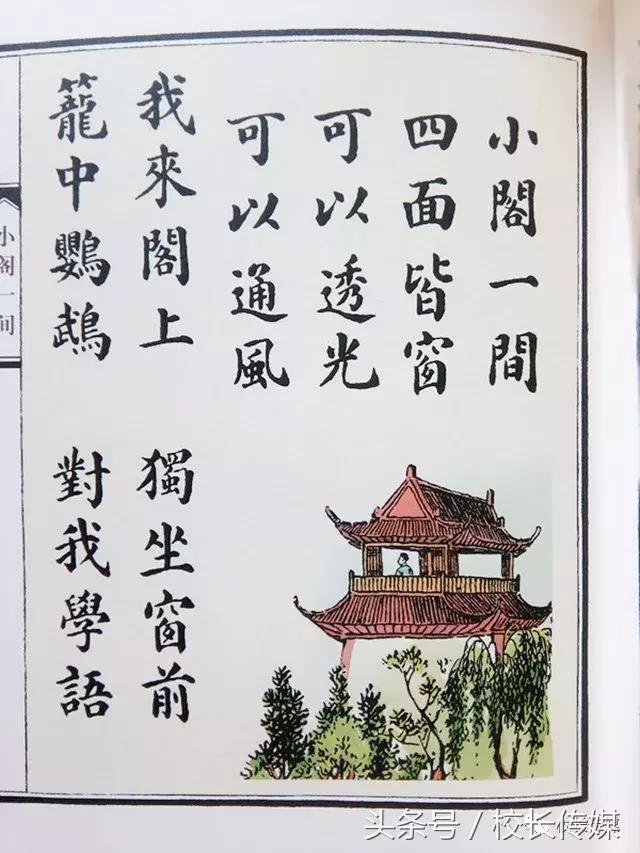 小閣一間
四面皆窗
可以透光
可以通風
我來閣上 獨坐窗前
籠中鸚鵡 對我學語
小閣一间
头条号／校长传媒